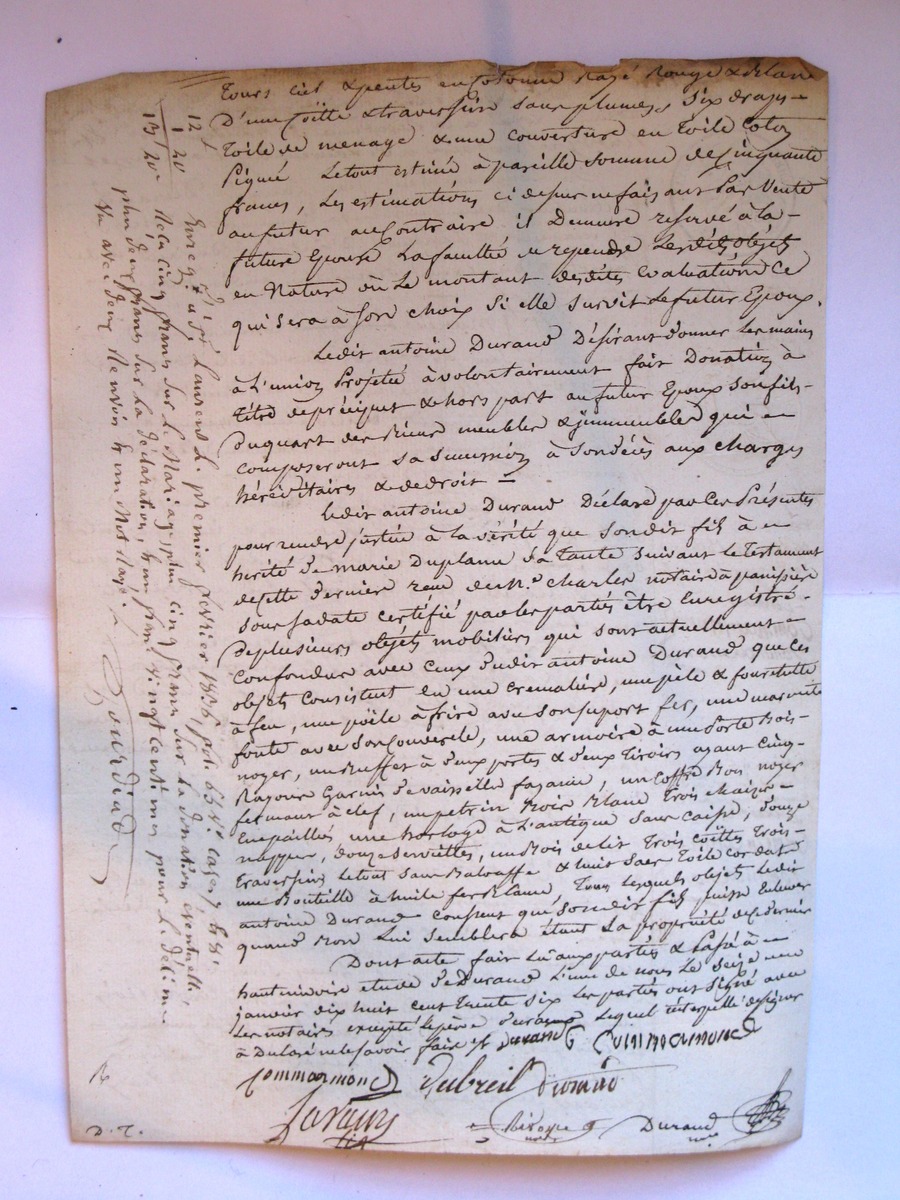 Tours ciel & pentes en Cotonne Rayé Rouge & Blanc
D'une Coëtte & traversière sans plumes, Six draps
toile de menage & une couverture en toile Coton
Piqué Le tout estimé à pareille somme de Cinquante
francs, Les estimations ci dessus ne faisant Pas Vente
au futur au Contraire il Demeure reservé à la
future Epouse La faculté de rependre Lesdits objets
en Nature ou Le montant desdites Evaluations Ce
qui sera à son choix Si elle survit le futur Epoux.
Ledit antoine Durand Désirant donner Les mains
à L'union Projetée à volontairement fait Donation à
titre de préciput & hors part au futur Epoux son fils
Du quart des Biens meubles & immeubles qui
composeront sa succession à Son décès aux charges
héréditaires & de droit
Ledit antoine Durand Déclare par Ces Présentes
pour rendre justice à la vérité que son dit fils à
hérité de marie Duplanne sa tante suivant le Testament
de cette derniere reçu de Me. Charles notaire à panissière
sous sa date certifié par les partiés être Enregistré
De plusieurs objets mobiliers qui sont actuellement
Confondus avec ceux dudit antoine Durand que Ces
objets Consistent en une cremalière, une pèle & fourchette
à feu, une poële à frire avec son suport fer, une marmite
fonte avec son Couvercle, une armoire à une Porte Bois
noyer, un Buffet à deux portes & deux Tiroirs ayant Cinq
Rayons Garnis de vaisselle fayance, un Coffre Bois noyer
fermant à clef, un petrin Bois Blanc Trois chaises
Empaillés une horloge à L'antique sans caisse, douze
nappes, douze serviettes, un Bois de lit Trois Coëttes Trois
traversins Le tout sans Balouffe & huit sacs Toile cordat
une Bouteille à huile fer Blanc, Tous Lesquels objets Ledit
antoine Durand consent que son dit fils puisse Enlever
quand Bon Lui Semblera étant La propriété de ce dernier
Dont acte fait Lu aux partiés & Passé à
haute rivoire etude de Durand L'un de nous Le seize
janvier dix huit cent Trente six Les partiés ont signé avec
Les notaires excepté Le père Durand Lequel interpellé de signer
à Declaré ne le savoir faire Durand Commarmond
Commarmond Dubreil Durand
Durand
12
1 20
13 20
Enreg. à St Laurent L. premier février 1836, fol. 65 Vo. Cases 7 & Sr.
Reçu Cinq francs sur Le Mariage, plus cinq francs sur la donation éventuelle,
plus deux francs sur la déclaration, & un franc vingt centimes pour Le décime
Vu avec deux Renvois & un Mot rayé.
Gourdiad
D. T.